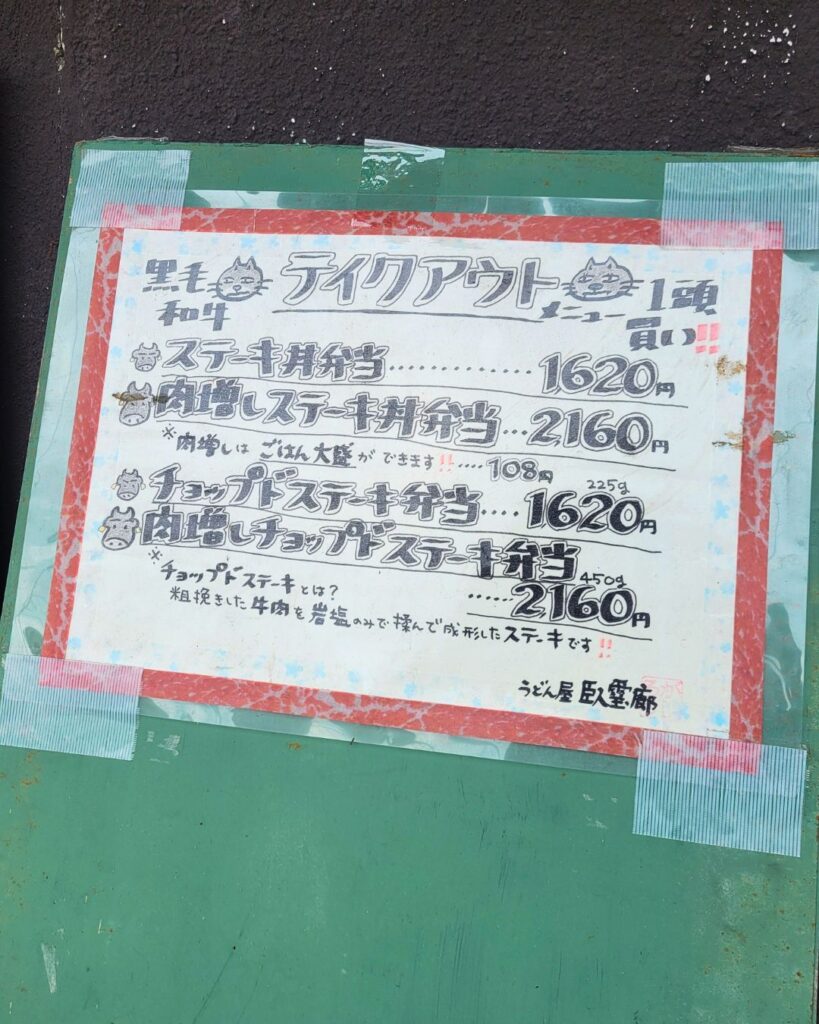 黒毛和牛 テイクアウトメニュー 1頭買い!!
ステーキ丼弁当…………… 1,620円
肉増しステーキ丼弁当… 2,160円
※肉増しは ごはん大盛ができます!! …… 108円
チョップドステーキ弁当…. 225g 1620円
肉増しチョップドステーキ弁当
450g …… 2,160円
※チョップドステーキとは?
粗挽きした牛肉を岩塩のみで揉んで成形したステーキです!!
うどん屋 臥雲廊